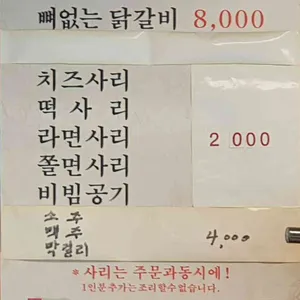 뼈없는 닭갈비 8,000
치즈사리
떡 사 리
라면사리 2 000
쫄면사리
비빔공기
소 주
맥 주 4,000
막걸리
* 사리는 주문과동시에!
1인분추가는조리할수없습니다.